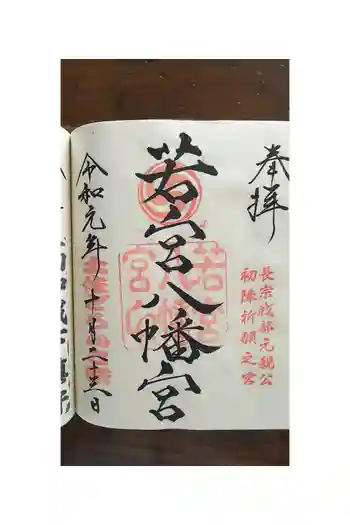 奉拝
長宗我部元親公
初陣祈願之宮
若宮八幡宮
令和元年十月二十三日